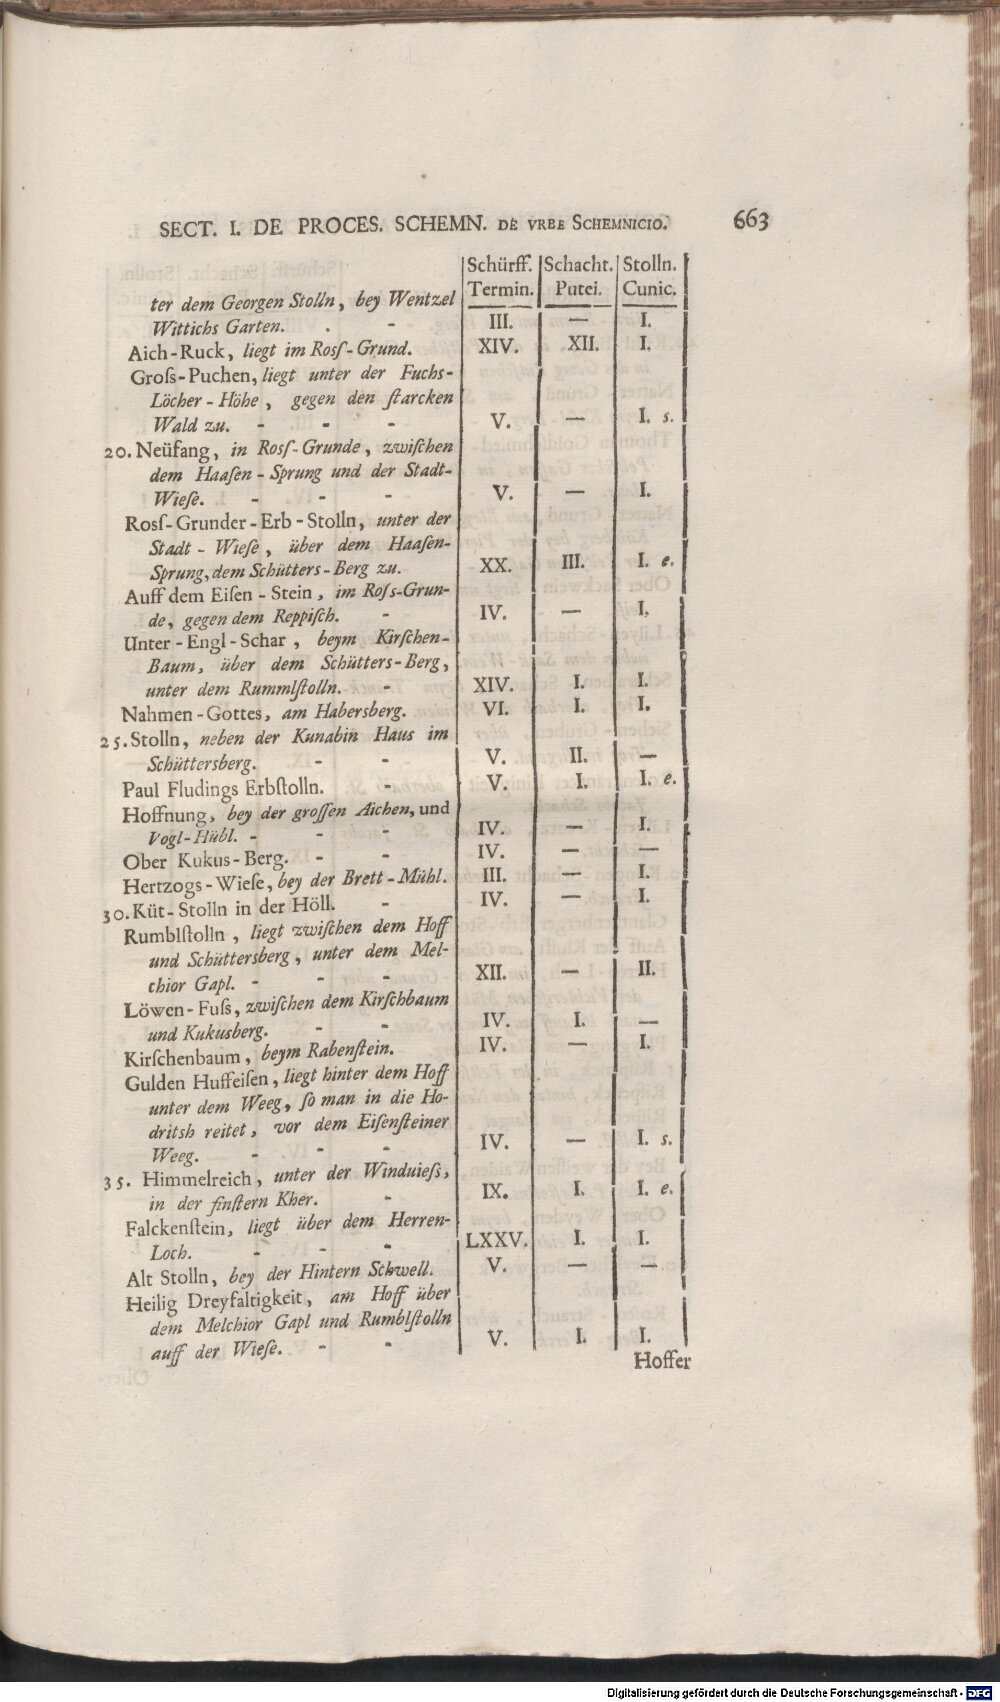 SECT. I. DE PROCES. SCHEMN. DE VRBE SCHEMNICIO. 663
Schürff. Schacht. Stolln.
Termin. Putei. Cunic.
ter dem Georgen Stolln, bey Wentzel
Wittichs Garten. . - III. — I.
Aich-Ruck, liegt im Roſſ-Grund. XIV. XII. I.
Groſs-Puchen, liegt unter der Fuchs-
Löcher-Höhe, gegen den ſtarcken
Wald zu. - - - V. — I. s.
20. Neüfang, in Roſſ-Grunde, zwiſchen
dem Haaſen-Sprung und der Stadt-
Wieſe. - - - V. — I.
Roſſ-Grunder-Erb-Stolln, unter der
Stadt-Wieſe, über dem Haaſen-
Sprung, dem Schütters-Berg zu. XX. III. I. e.
Auff dem Eiſen-Stein, im Roſs-Grun-
de, gegen dem Reppiſch. - IV. — I.
Unter-Engl-Schar, beym Kirſchen-
Baum, über dem Schütters-Berg,
unter dem Rummlſtolln. - XIV. I. I.
Nahmen-Gottes, am Habersberg. VI. I. I.
25. Stolln, neben der Kunabin Haus im
Schüttersberg. - - V. II. —
Paul Fludings Erbſtolln. - V. I. I. e.
Hoffnung, bey der groſſen Aichen, und
Vogl-Hübl. - - - IV. — I.
Ober Kukus-Berg. - - IV. — —
Hertzogs-Wieſe, bey der Brett-Mühl. III. — I.
30. Küt-Stolln in der Höll. - IV. — I.
Rumblſtolln, liegt zwiſchen dem Hoff
und Schüttersberg, unter dem Mel-
chior Gapl. - - - XII. — II.
Löwen-Fuſs, zwiſchen dem Kirſchbaum
und Kukusberg. - - IV. I. —
Kirſchenbaum, beym Rabenſtein. IV. — I.
Gulden Huffeiſen, liegt hinter dem Hoff
unter dem Weeg, ſo man in die Ho-
dritsh reitet, vor dem Eiſenſteiner
Weeg. - - - IV. — I. s.
35. Himmelreich, unter der Winduieſs,
in der finſtern Kher. - IX. I. I. e.
Falckenſtein, liegt über dem Herren-
Loch. - - - LXXV. I. I.
Alt Stolln, bey der Hintern Schwell. V. — —
Heilig Dreyfaltigkeit, am Hoff über
dem Melchior Gapl und Rumblſtolln
auff der Wieſe. - - V. I. I.
Hoffer
Digitalisierung gefördert durch die Deutsche Forschungsgemeinschaft - DFG